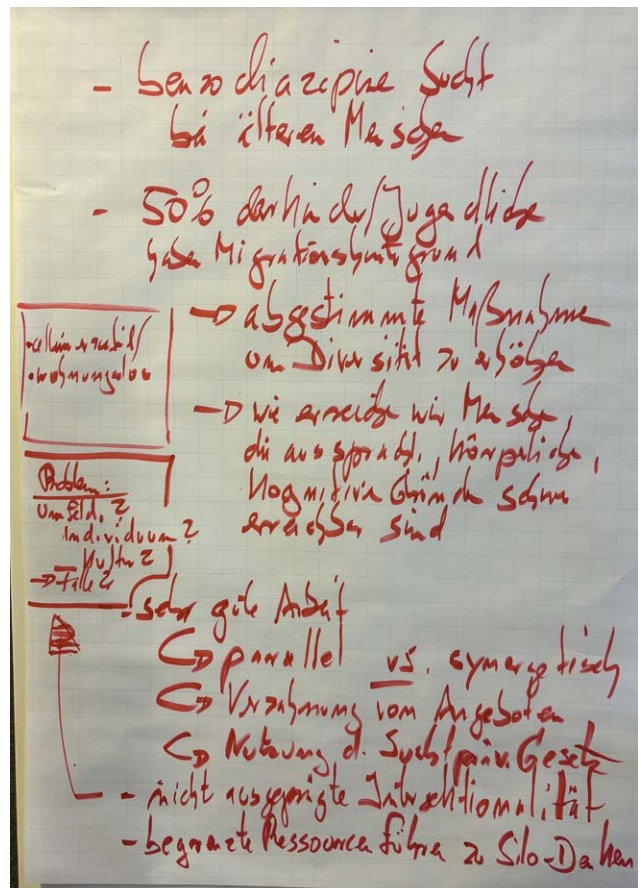 - benzodiazepine Sucht
bei älteren Menschen
- 50% der Kinder/Jugendliche
haben Migrationshintergrund
→ abgestimmte Maßnahmen
um Diversität zu erhöhen
→ wie erreichen wir Menschen,
die aus sprachl., körperliche,
kognitive Gründe schwer
erreichbar sind
- alleinerzieh/
- wohnungslos
Problem:
Umfeld?
Individuum?
Kultur?
→ Fälle?
- sehr gute Arbeit
↪ parallel vs. synergetisch
↪ Verzahnung von Angeboten
↪ Nutzung d. Suchtpräv. Gesetz
- nicht ausgeprägte Intersektionalität
- begrenzte Ressourcen führen zu Silo-Denken